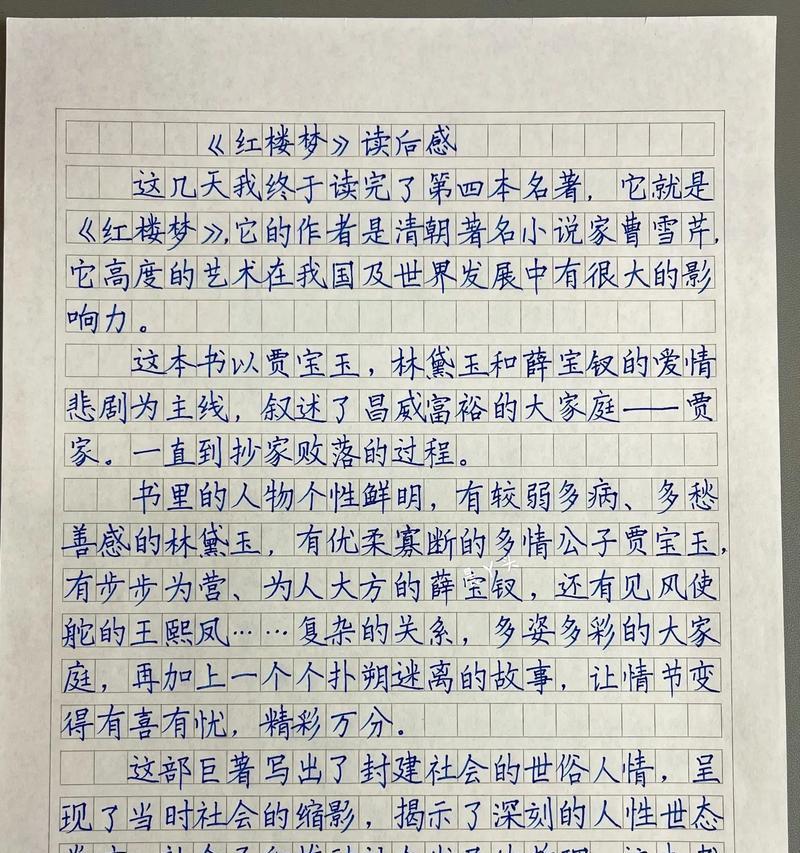 《红楼梦》读后感
这几天我终于读完了第四本名著，它就是
《红楼梦》，它的作者是清朝著名小说家曹雪芹，
它高度的艺术在我国及世界发展中有很大的影
响力。
这本书以贾宝玉，林黛玉和薛宝钗的爱情
悲剧为主线，叙述了昌威富裕的大家庭——贾
家。一直到抄家败落的过程。
书里的人物个性鲜明，有较弱多病、多愁
善感的林黛玉，有优柔寡断的多情公子贾宝玉，
有步步为营、为人大方的薛宝钗，还有见风使
舵的王熙凤……复杂的关系，多姿多彩的大家
庭，再加上一个个扑朔迷离的故事，让情节变
得有喜有忧，精彩万分。
这部巨著写出了封建社会的世俗人情，呈
现了当时社会的缩影，揭示了深刻的人性世态